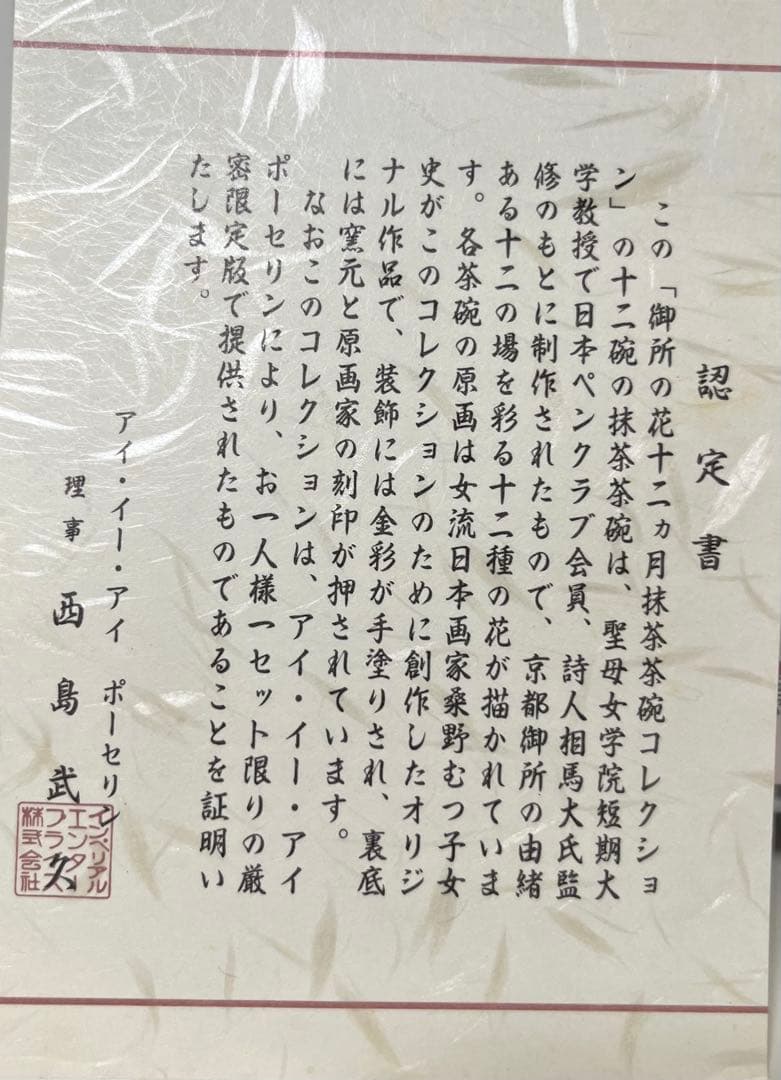 認定書
この「御所の花十二ヵ月抹茶茶碗コレクショ
ン」の十二碗の抹茶茶碗は、聖母女学院短期大
学教授で日本ペンクラブ会員、詩人相馬大氏監
修のもとに制作されたもので、京都御所の由緒
ある十二の場を彩る十二種の花が描かれていま
す。各茶碗の原画は女流日本画家桑野むつ子女
史がこのコレクションのために創作したオリジ
ナル作品で、装飾には金彩が手塗りされ、裏底
には窯元と原画家の刻印が押されています。
なおこのコレクションは、アイ・イー・アイ
ポーセリンにより、お一人様一セット限りの厳
密限定版で提供されたものであることを証明い
たします。
アイ・イー・アイ ポーセリン
理事 西島武久
インペリアル
エンタ
プラ
株式会社